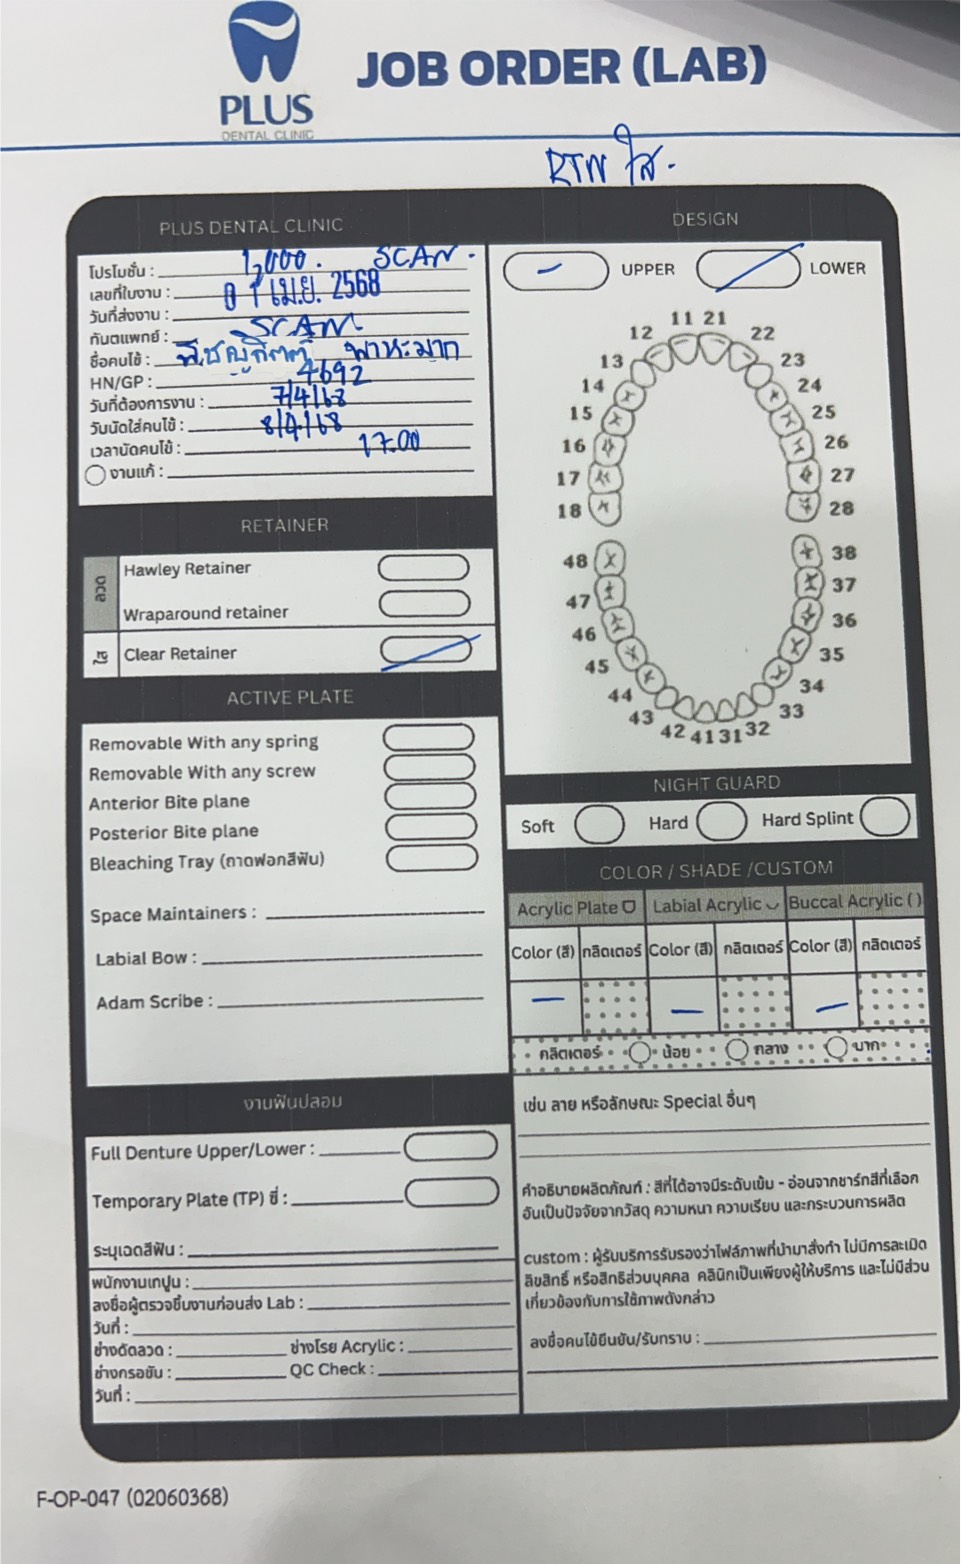 PLUS
DENTAL CLINIC
JOB ORDER (LAB)
RTN ใส.
PLUS DENTAL CLINIC
โปรโมชั่น : 1,000. SCAN.
เลขที่ใบงาน :
วันที่ส่งงาน : 0 1 เม.ย. 2568
ทันตแพทย์ : SCAN
ชื่อคนไข้ :
HN/GP : 4692
วันที่ต้องการงาน : 7/4/68
วันนัดใส่คนไข้ : 8/4/68
เวลานัดคนไข้ : 17.00
งานแก้ :
RETAINER
ลวด
Hawley Retainer
Wraparound retainer
ใส
Clear Retainer
ACTIVE PLATE
Removable With any spring
Removable With any screw
Anterior Bite plane
Posterior Bite plane
Bleaching Tray (ถาดฟอกสีฟัน)
Space Maintainers :
Labial Bow :
Adam Scribe :
งานฟันปลอม
Full Denture Upper/Lower :
Temporary Plate (TP) ซี่ :
ระบุเฉดสีฟัน :
พนักงานเทปูน :
ลงชื่อผู้ตรวจชิ้นงานก่อนส่ง Lab :
วันที่ :
ช่างดัดลวด : ช่างโรย Acrylic :
ช่างกรอขัน : QC Check :
วันที่ :
DESIGN
UPPER LOWER
11 21
12 22
13 23
14 24
15 25
16 26
17 27
18 28
48 38
47 37
46 36
45 35
44 34
43 33
42 41 31 32
NIGHT GUARD
Soft Hard Hard Splint
COLOR / SHADE /CUSTOM
Acrylic Plate Labial Acrylic Buccal Acrylic ( )
Color (สี) กลิตเตอร์ Color (สี) กลิตเตอร์ Color (สี) กลิตเตอร์
กลิตเตอร์ น้อย กลาง มาก
เช่น ลาย หรือลักษณะ Special อื่นๆ
คำอธิบายผลิตภัณฑ์ : สีที่ได้อาจมีระดับเข้ม - อ่อนจากชาร์กสีที่เลือก
อันเป็นปัจจัยจากวัสดุ ความหนา ความเรียบ และกระบวนการผลิต
custom : ผู้รับบริการรับรองว่าไฟล์ภาพที่นำมาสั่งทำ ไม่มีการละเมิด
ลิขสิทธิ์ หรือสิทธิส่วนบุคคล คลินิกเป็นเพียงผู้ให้บริการ และไม่มีส่วน
เกี่ยวข้องกับการใช้ภาพดังกล่าว
ลงชื่อคนไข้ยืนยัน/รับทราบ :
F-OP-047 (02060368)